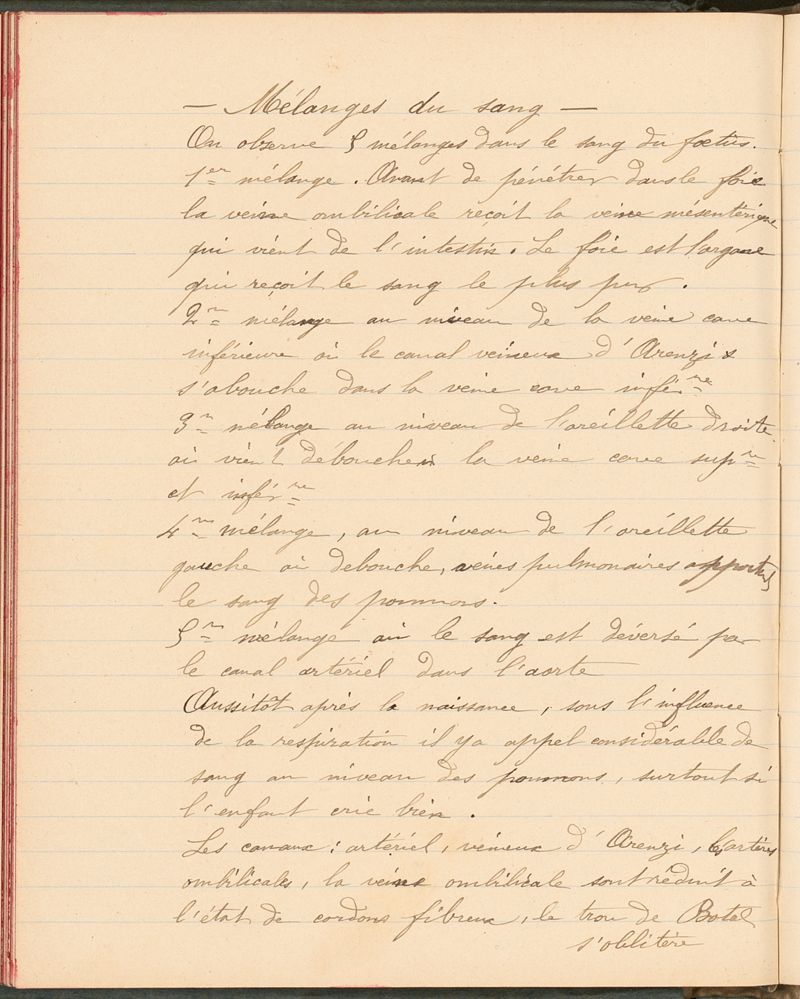 — Mélanges du sang —
On observe 5 mélanges dans le sang du foetus.
1er mélange. Avant de pénétrer dans le foie
la veine ombilicale reçoit la veine mésentérique
qui vient de l'intestin. Le foie est l'organe
qui reçoit le sang le plus pur.
2me mélange au niveau de la veine cave
inférieure où le canal veineux d'Arenzi
s'abouche dans la veine cave infére
3me mélange au niveau de l'oreillette droite
où vient déboucher la veine cave supre
et infére
4me mélange, au niveau de l'oreillette
gauche où debouche, veines pulmonaires apportant
le sang des poumons.
5me mélange où le sang est déversé par
le canal artériel dans l'aorte
Aussitôt après la naissance, sous l'influence
de la respiration il y a appel considérable de
sang au niveau des poumons, surtout si
l'enfant crie bien.
Les canaux : artériel, veineux d'Arenzi, les artères
ombilicales, la veine ombilicale sont réduit à
l'état de cordons fibreux, le trou de Botal
s'oblitère